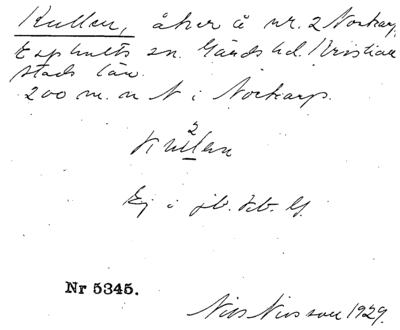 Kullen, åker å nr. 2 Norkarp,
Esphults sn. Gärds hd. Kristian
stads län.
200 m. n N i Norkarp.
2
Kullen
Ej i jb.
Nr 5345.
Nils Nilsson 1929.